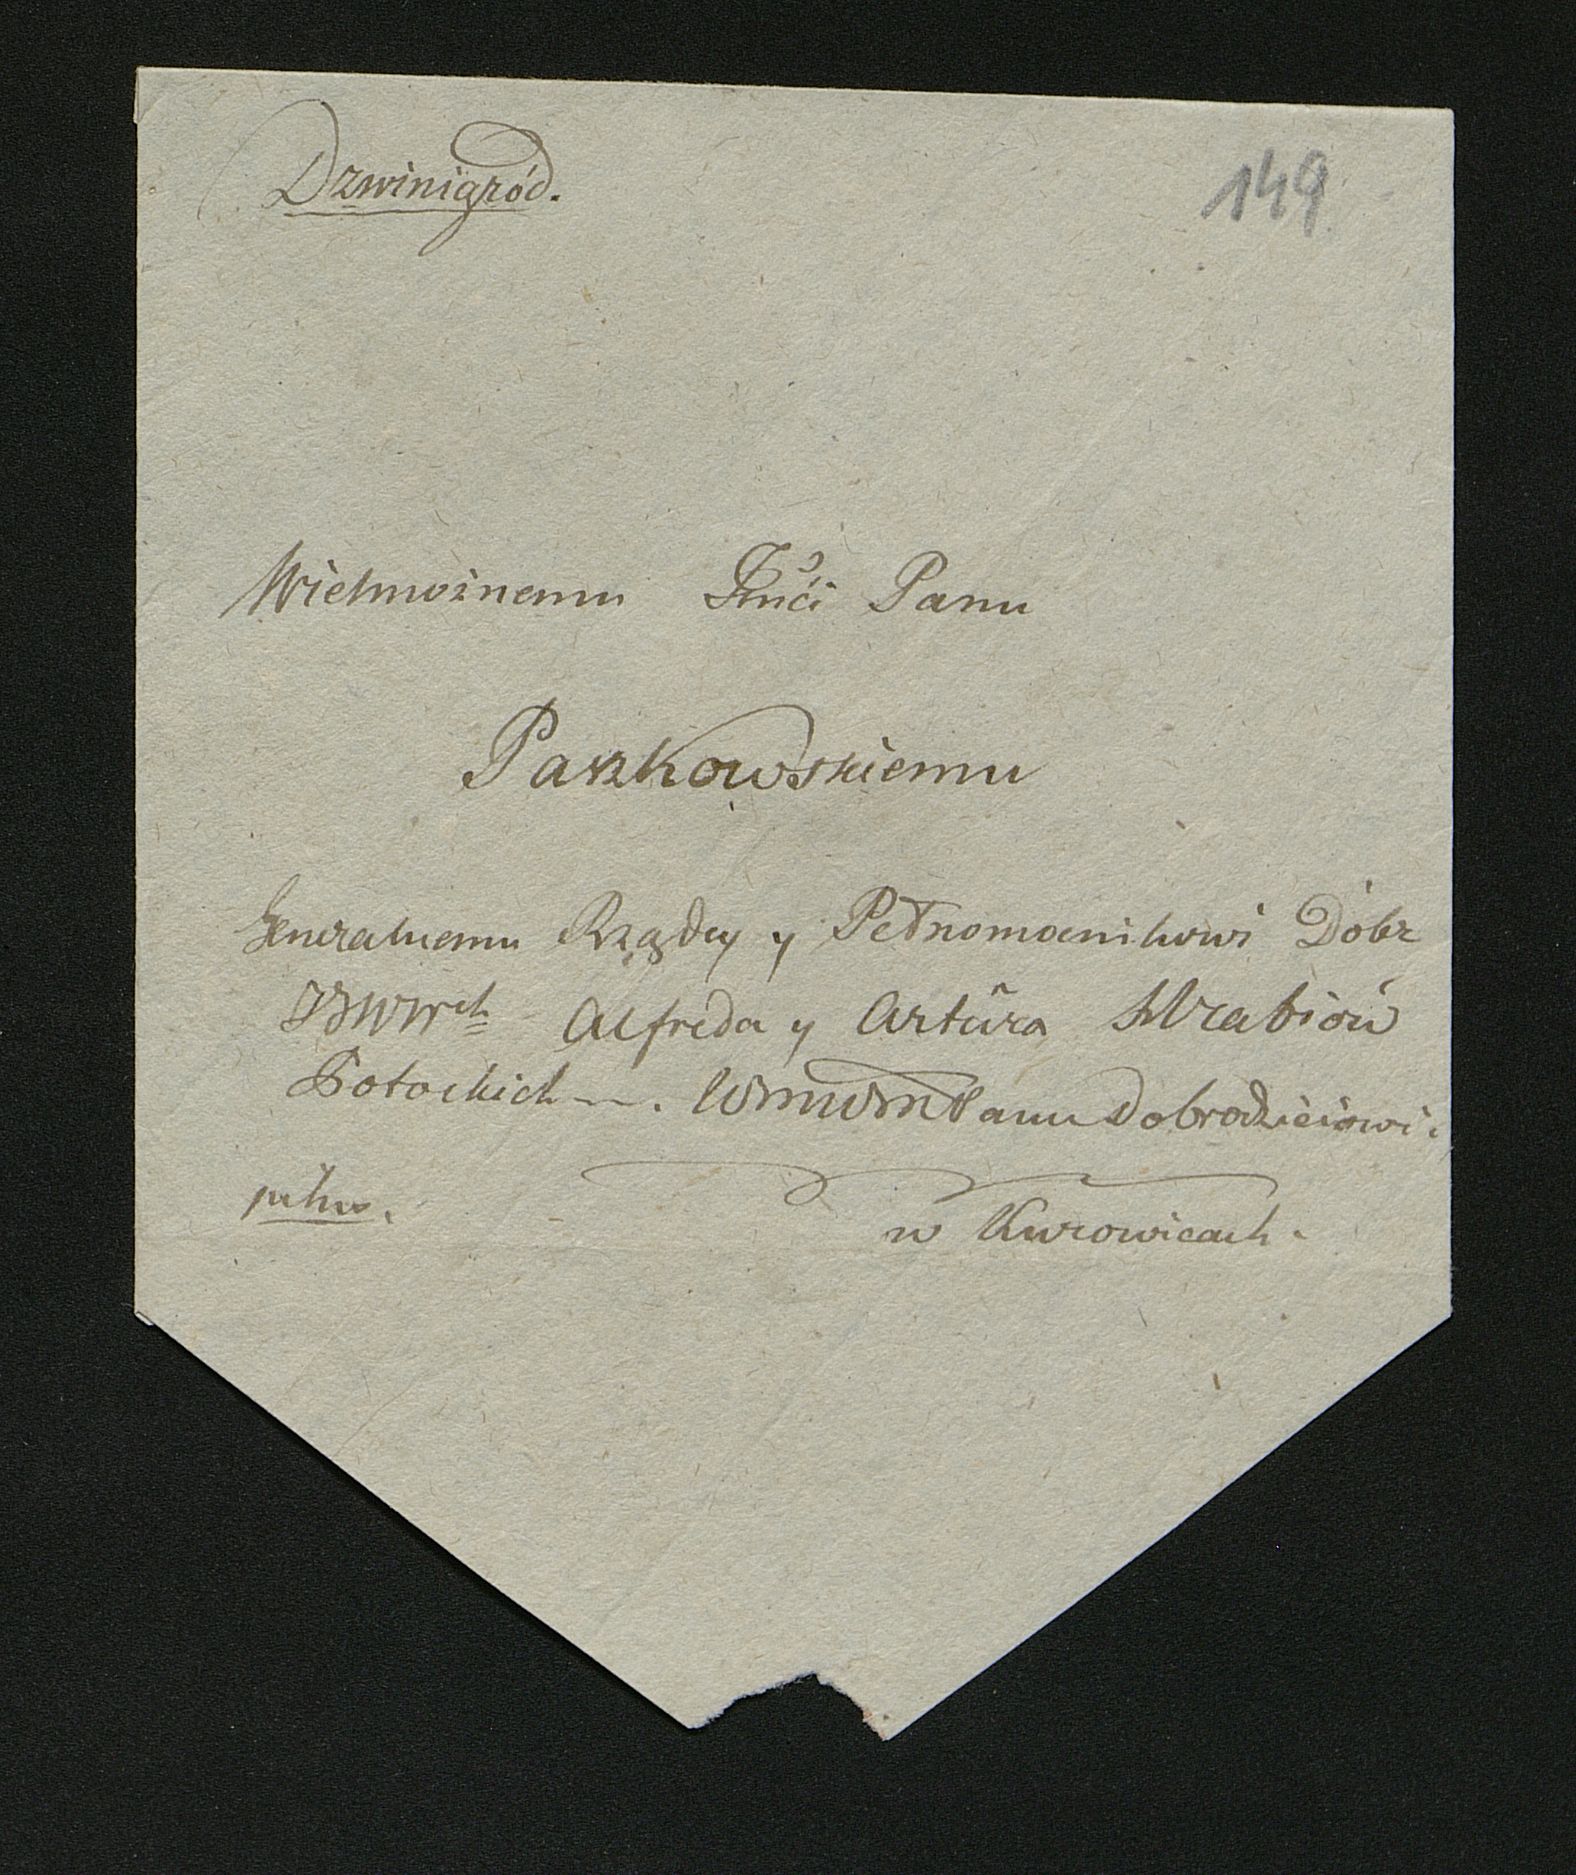 Dzwinigród.
149
Wielmożnemu Jmći Panu
Paszkowskiemu
Generalnemu Rządcy y Pełnomocnikowi Dóbr
JWWch Alfreda y Artura Hrabiów
Potockich Panu Dobrodziejowi
w Kurowicach.